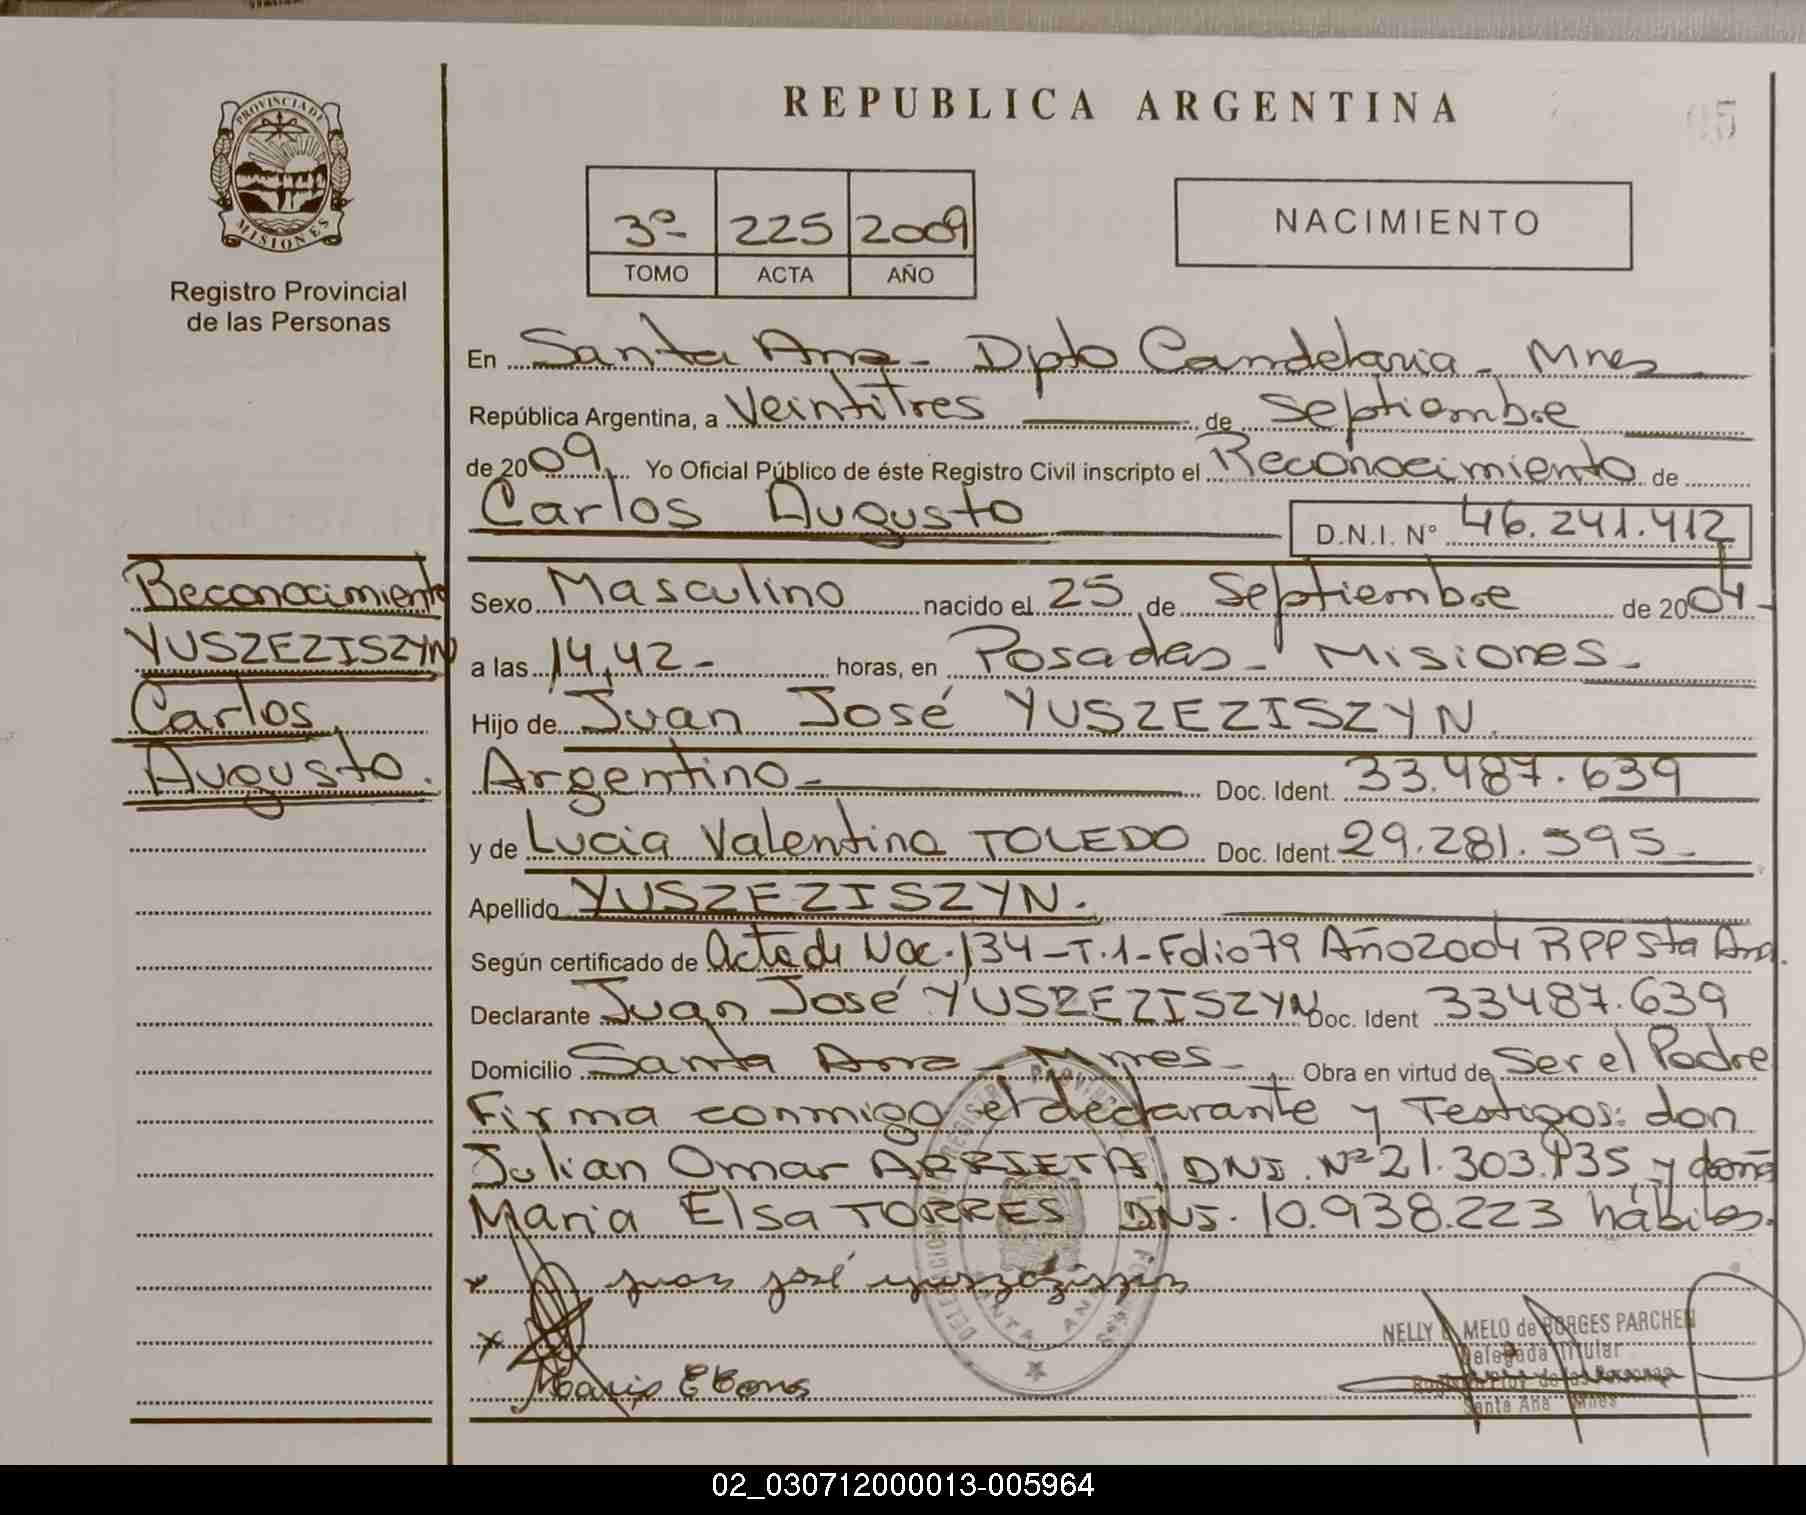 REPUBLICA ARGENTINA
PROVINCIA DE
MISIONES
Registro Provincial
de las Personas
3º 225 2009
TOMO ACTA AÑO
NACIMIENTO
En Santa Ana - Dpto Candelaria - Mnes
República Argentina, a Veintitres de Septiembre
de 2009 Yo Oficial Público de éste Registro Civil inscripto el Reconocimiento de
Carlos Augusto D.N.I. Nº 46.241.412
Reconocimiento
YUSZEZISZYN
Carlos
Augusto.
Sexo Masculino nacido el 25 de Septiembre de 2004-
a las 14,42- horas, en Posadas - Misiones-
Hijo de Juan José YUSZEZISZYN.
Argentino- Doc. Ident. 33.487.639
y de Lucia Valentina TOLEDO Doc. Ident. 29.281.395-
Apellido YUSZEZISZYN.
Según certificado de Acta de Nac. 134-T.1-Folio 79 Año 2004 RPP Sta Ana.
Declarante Juan José YUSZEZISZYN Doc. Ident 33487.639
Domicilio Santa Ana - Mnes- Obra en virtud de Ser el Padre
Firma conmigo el declarante y Testigos: don
Julian Omar ARRIETA, DNI. Nº 21.303.135, y doña
Maria Elsa TORRES DNI. 10.938.223 hábiles.
SANTA ANA
NELLY MELO de BORGES PARCHEN
Delegada Titular
Santa Ana Mnes
02_030712000013-005964